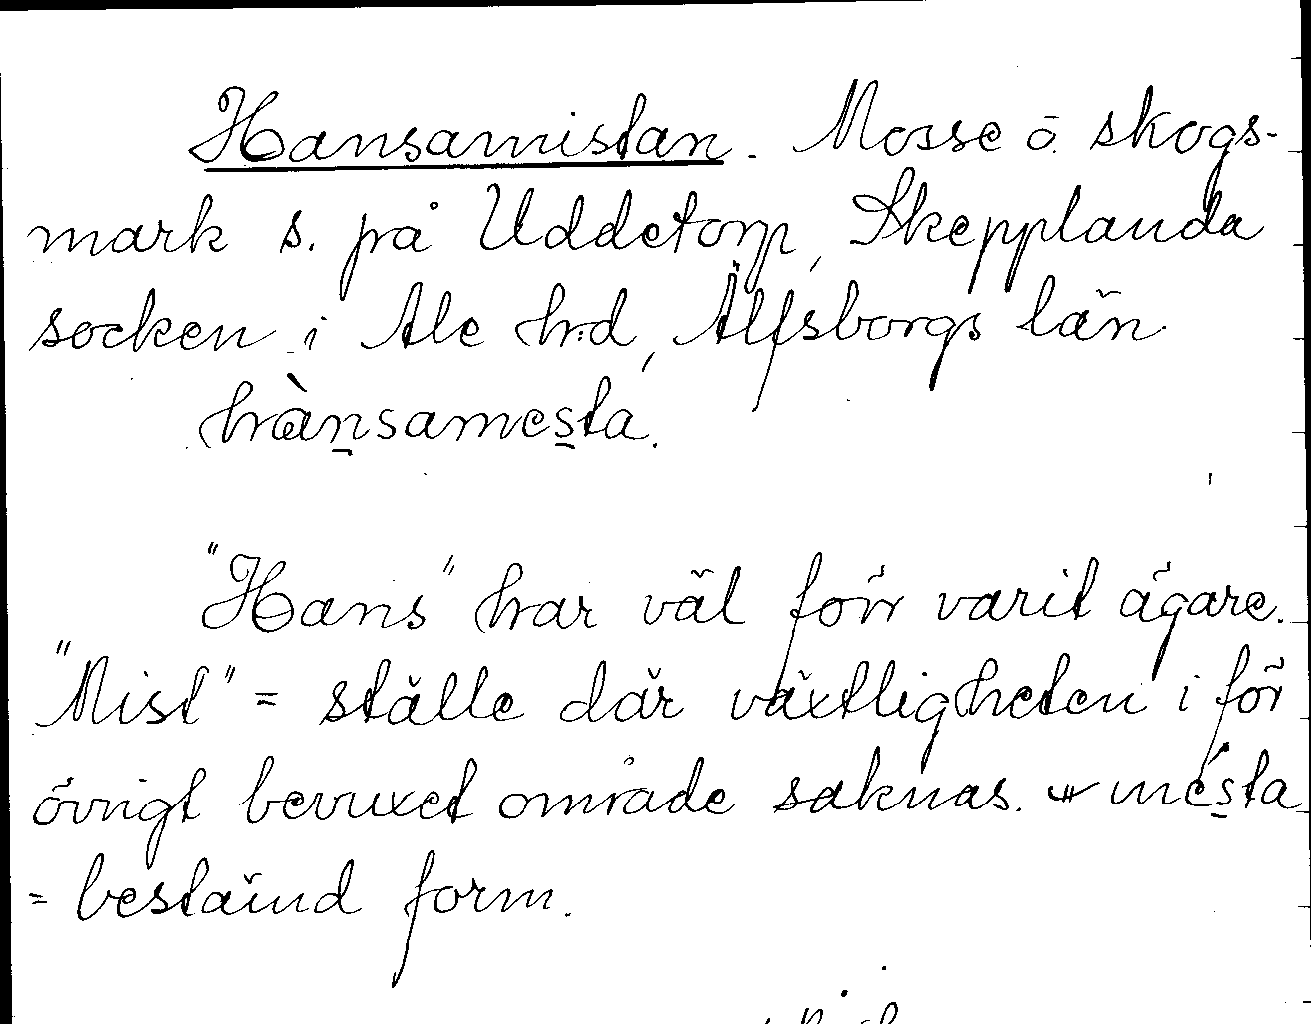 Hansamistan. Mosse o. skogs-
mark s. på Uddetorp, Skepplanda
socken i Ale hrd, Älfsborgs län.
hàn̲sames̲ta.
"Hans" har väl förr varit ägare.
"Mist" = ställe där växtligheten i för
övrigt bevuxet område saknas. més̲ta
= bestämd form.